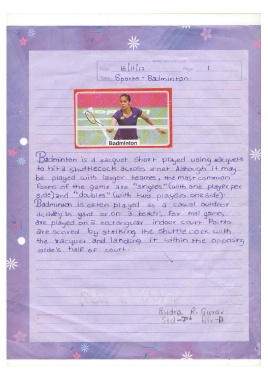 Date 16/11/17 Page 1
Sports - Badminton
Badminton
Badminton is a racquet short played using racquets
to hit a shuttlecock across a net. Although it may
be played with larger teames, the most common
forms of the game are "singles" (with one player per
side) and "doubles" (with two players one side).
Badminton is often played as a casual outdoor
activity in yard or on a beach, for mal games,
are played on a rectangular indoor court. Points
are scored by striking the shuttle cock with
the racquet and landing it within the opposing
side's half of court.
Rudra R. Gurav
Std -
Div - D